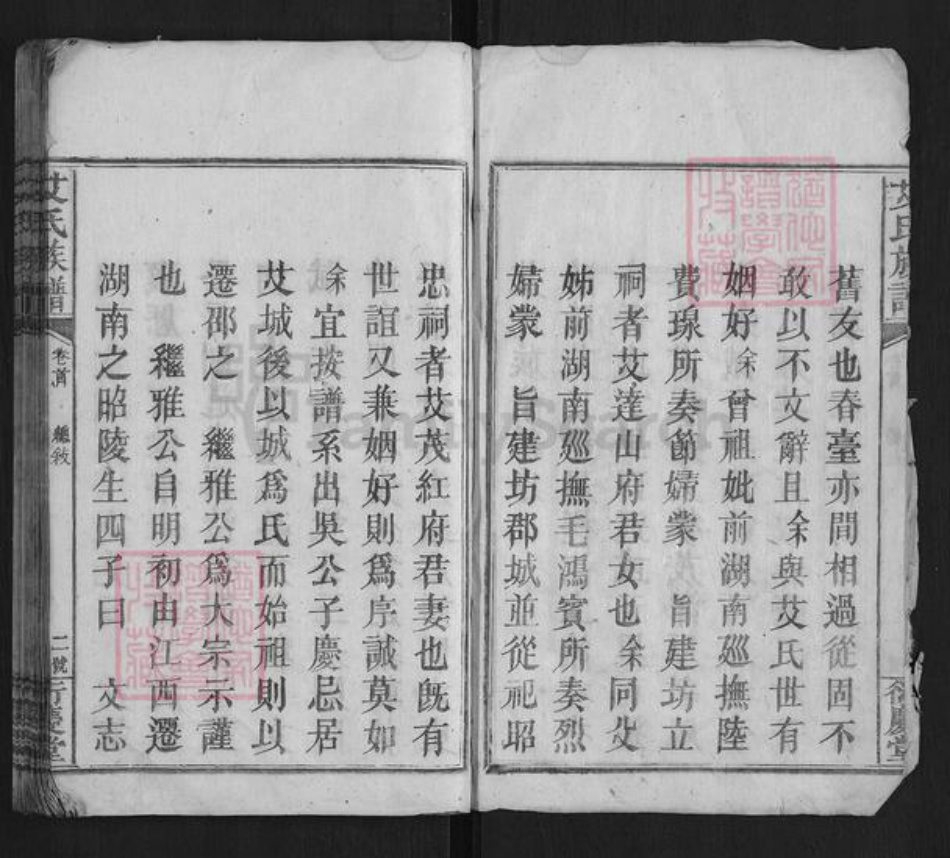 舊友也春臺亦間相過從固不
敢以不文辭且余與艾氏世有
姻好余曾祖妣前湖南廵撫陸
費瑔所奏節婦蒙 旨建坊立
祠者艾達山府君女也余同父
姊前湖南廵撫毛鴻賓所奏烈
婦蒙 旨建坊郡城並從祀昭
忠祠者艾茂紅府君妻也既有
世誼又兼姻好則爲序誠莫如
余宜按譜系出吳公子慶忌居
艾城後以城爲氏而始祖則以
遷邵之 繼雅公爲大宗示謹
也 繼雅公自明初由江西遷
湖南之昭陵生四子曰 文志
艾氏族譜
卷首
總敘
二號
衍慶堂